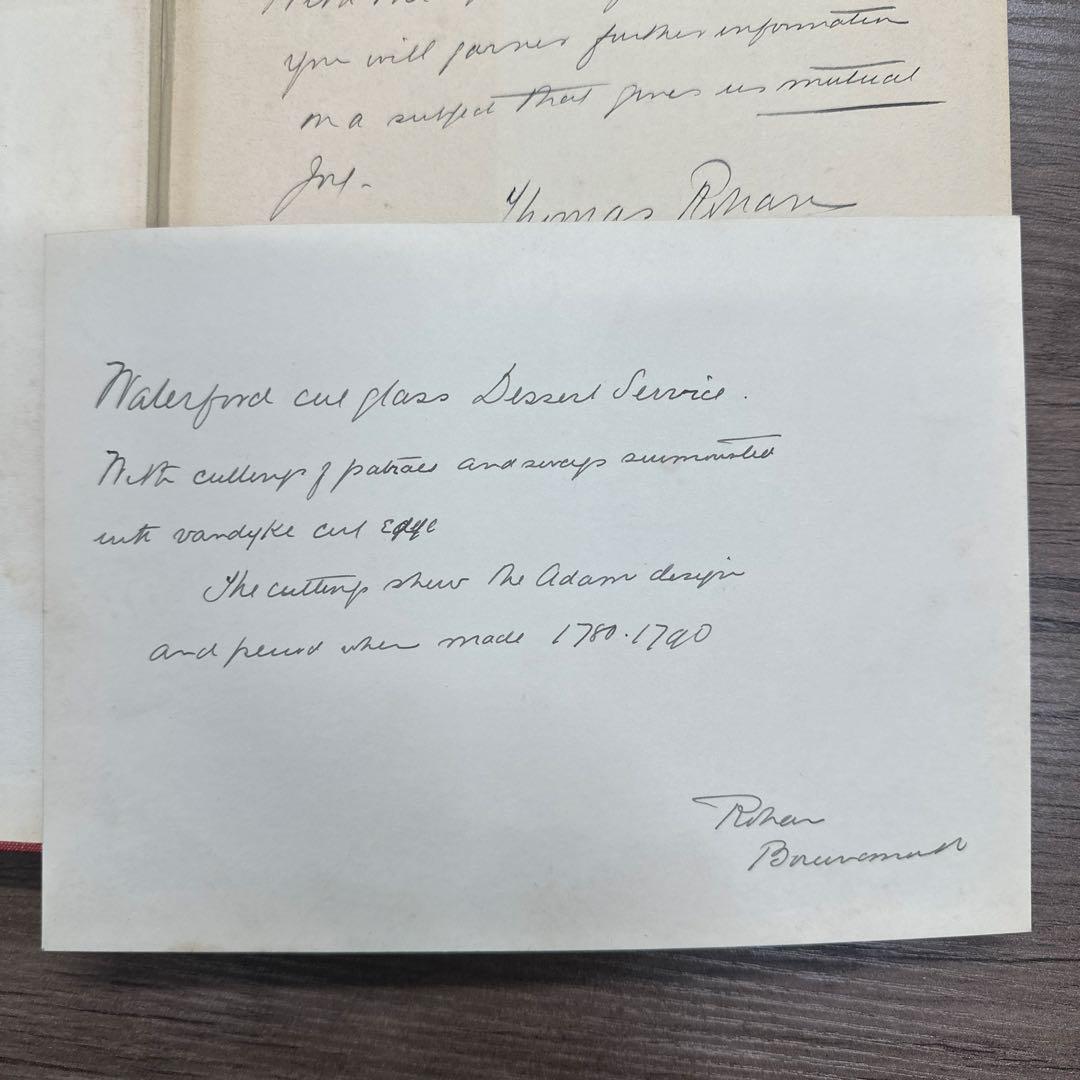 you will garner further information
on a subject that gives us mutual
Joy.
Thomas Rohan
Waterford cut glass Dessert Service.
With cuttings of patraes and swags surmounted
with vandyke cut Edge
The cuttings shew the Adam design
and period when made 1780.1790
Rohan
Bournemouth